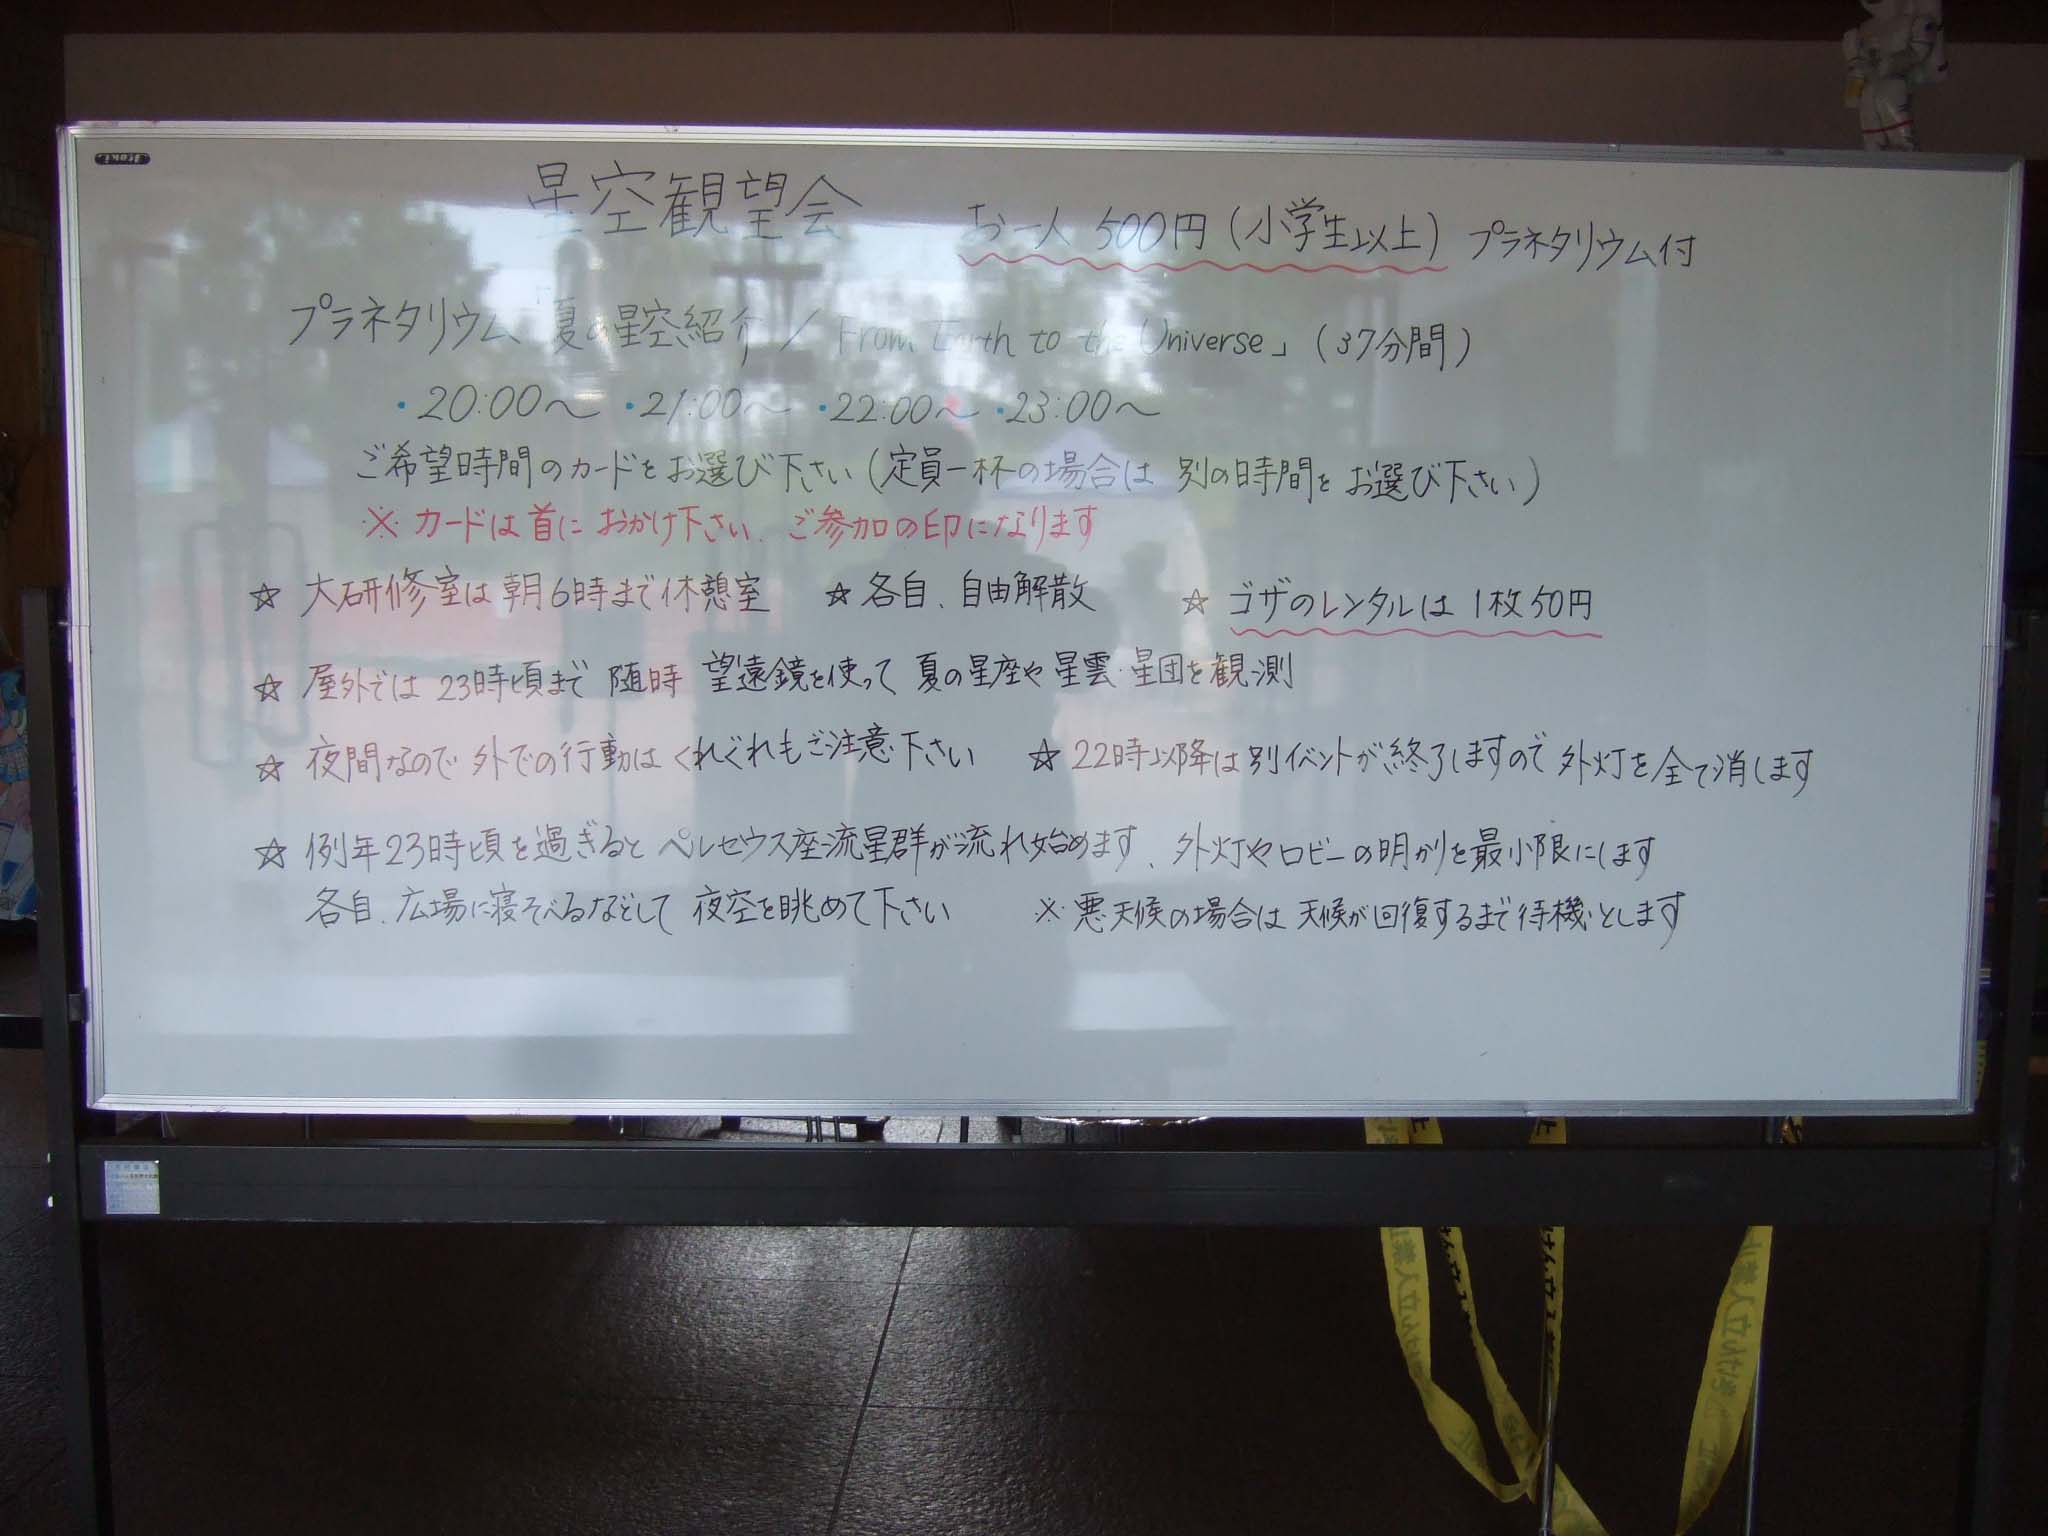 星空観望会 お一人 500円(小学生以上) プラネタリウム付
プラネタリウム「夏の星空紹介/From Earth to the Universe」(37分間)
・20:00~ ・21:00~ ・22:00~ ・23:00~
ご希望時間のカードをお選び下さい(定員一杯の場合は 別の時間をお選び下さい)
※カードは首におかけ下さい、ご参加の印になります
☆ 大研修室は朝6時まで休憩室 ☆各自、自由解散 ☆ ゴザのレンタルは1枚50円
☆ 屋外では23時頃まで 随時 望遠鏡を使って 夏の星座や星雲・星団を観測
☆ 夜間なので外での行動はくれぐれもご注意下さい ☆22時以降は別イベントが終了しますので外灯を全て消します
☆ 例年23時頃を過ぎるとペルセウス座流星群が流れ始めます、外灯やロビーの明かりを最小限にします
各自、広場に寝そべるなどして 夜空を眺めて下さい ※悪天候の場合は天候が回復するまで待機とします